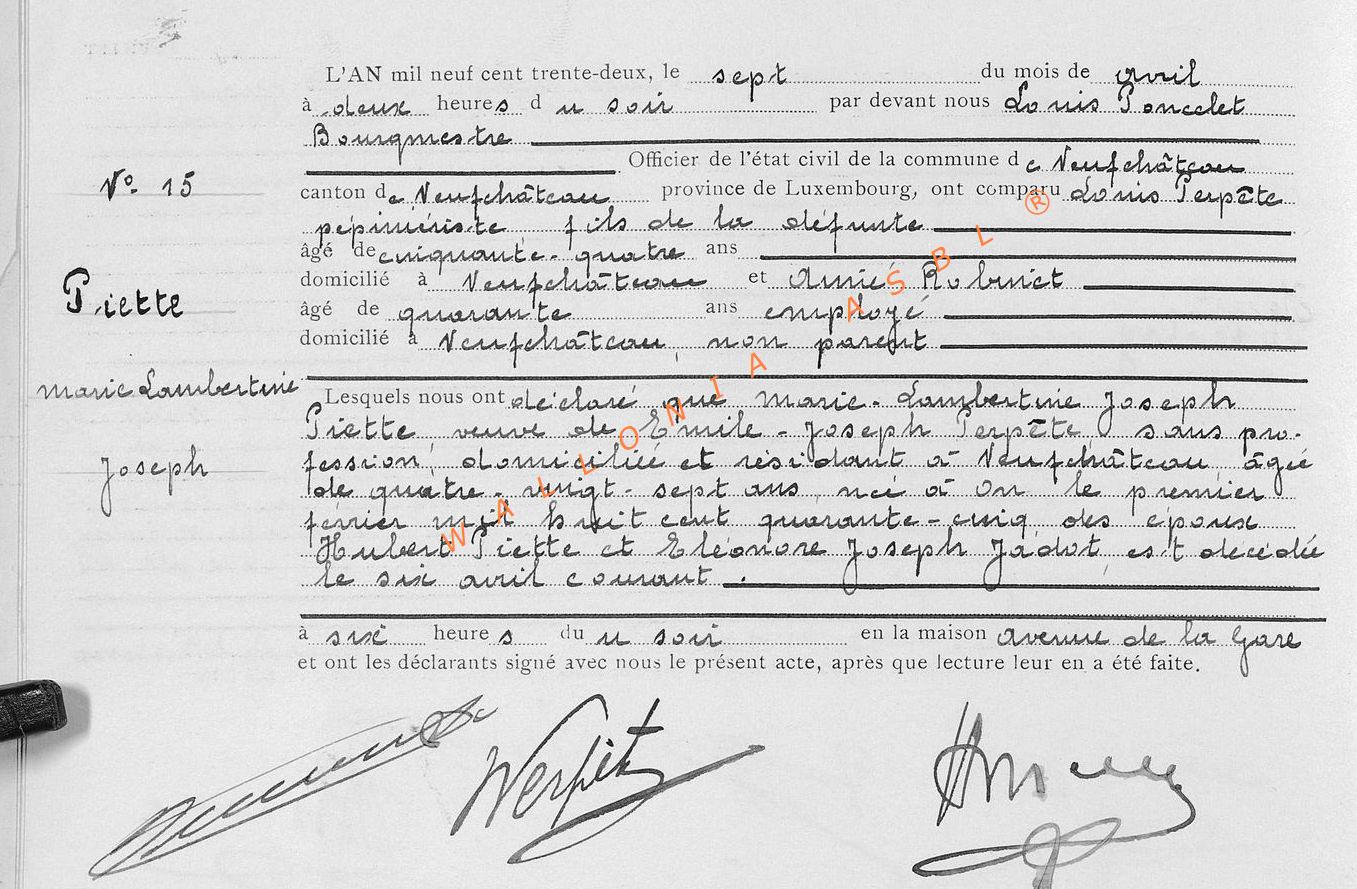 L'AN mil neuf cent trente-deux, le sept du mois de avril
à deux heures du soir par devant nous Louis Poncelet
Bourgmestre
Officier de l'état civil de la commune de Neufchâteau
N° 15
canton de Neufchâteau province de Luxembourg, ont comparu Louis Perpête
pépiniériste fils de la défunte
âgé de cinquante-quatre ans
domicilié à Neufchâteau et Aimé
Piette
âgé de quarante ans employé
domicilié à Neufchâteau, non parent
Marie Lambertine
Lesquels nous ont déclaré que Marie-Lambertine Joseph
Piette, veuve de Emile-Joseph Perpête sans pro-
Joseph
fession, domiciliée et résidant à Neufchâteau, âgée
de quatre-vingt-sept ans, née à On le premier
février mil huit cent quarante-cinq des époux
Hubert Piette et Eléonore Joseph Jadot, est décédée
le six avril courant.
à six heures du u soir en la maison avenue de la Gare
et ont les déclarants signé avec nous le présent acte, après que lecture leur en a été faite.
WALLONIA ASBL ®